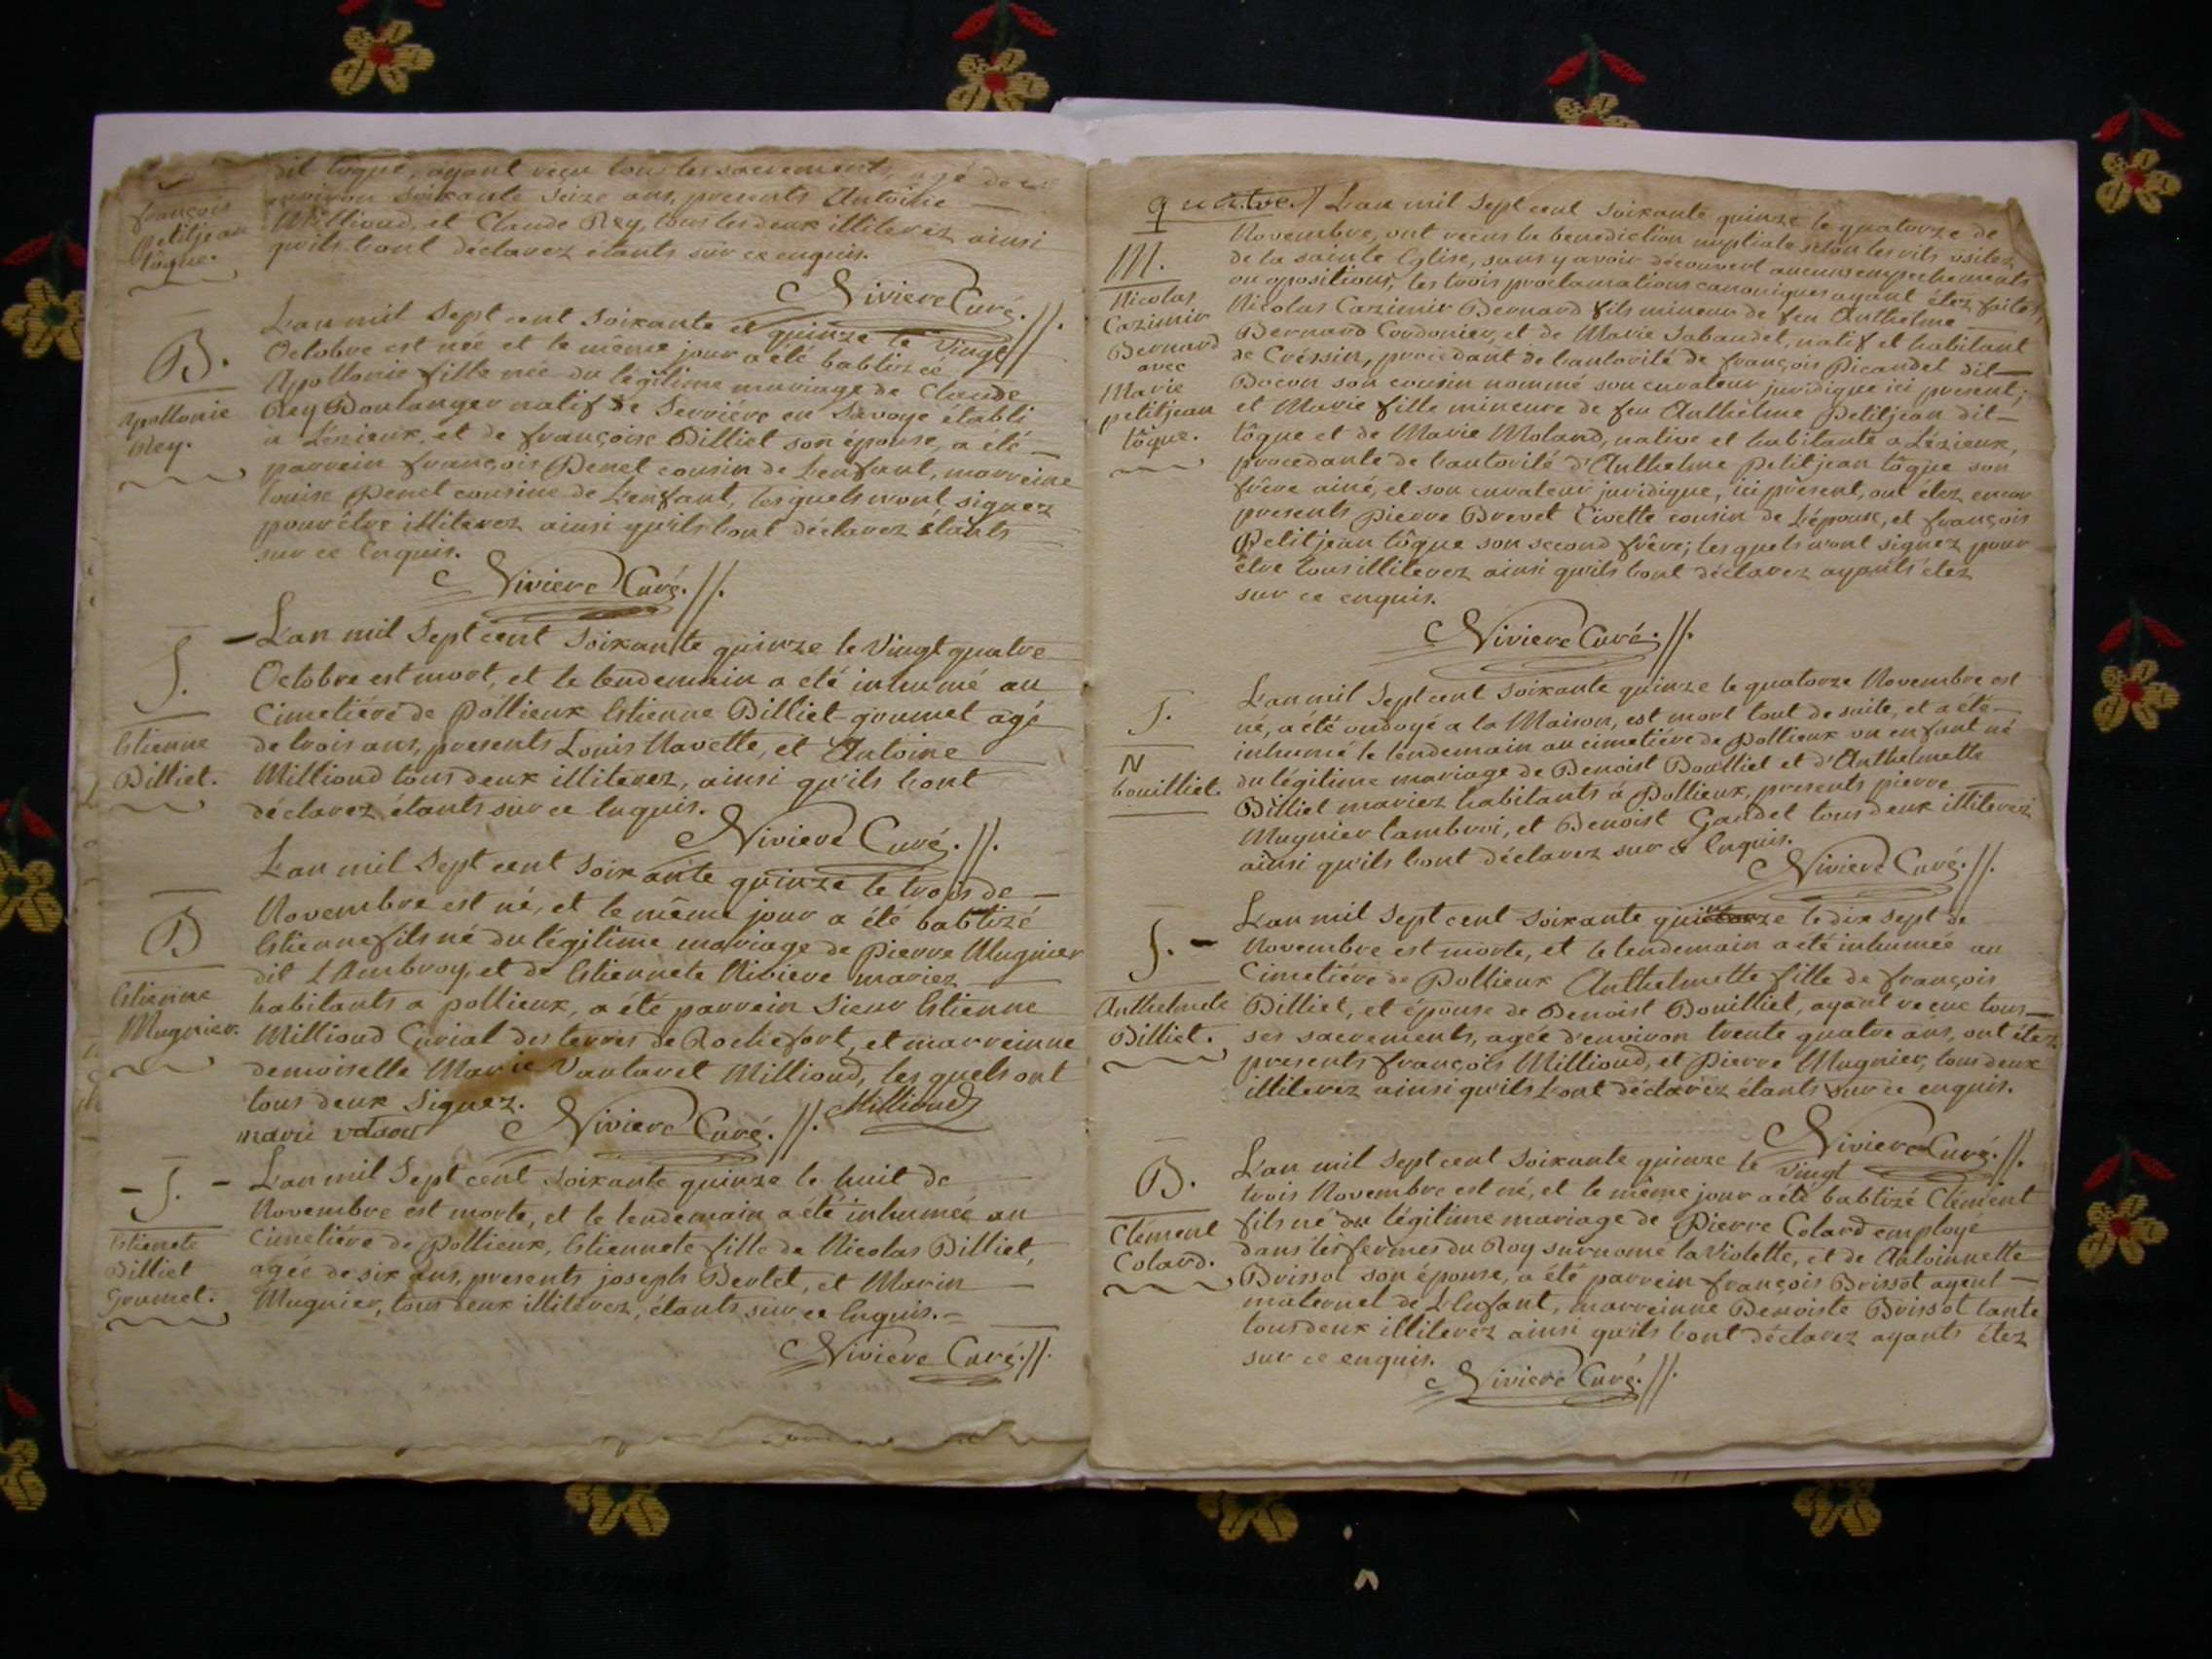 dit tôque, ayant reçu tous les sacrements, agé de
environ soixante seize ans, presents Antoine
Millioud, et Claude Rey, tous les deux illiterez ainsi
qu'ils l'ont déclarez étants sur ce enquis.
françois
Petitjean
tôque.
Niviere Curé. //.
B.
Apollonie
Rey.
L'an mil sept cent soixante et quinze le vingt
Octobre est née et le même jour a été babtizée
Apollonie fille née du légitime mariage de Claude
Rey Boulanger natif de Serriére en Savoye établi
a Lézieux, et de françoise Billiet son épouse, a été
parrein françois Penet cousin de L'enfant, marreine
louise Penet cousine de L'enfant, lesquels n'ont signez
pour être illiterez ainsi qu'ils l'ont déclarez étants
sur ce Enquis.
Niviere Curé. //.
S.
Estienne
Billiet.
L'an mil Sept cent soixante quinze le Vingt quatre
Octobre est mort, et le lendemain a été inhumé au
Cimetiére de Pollieux Estienne Billiet goumet agé
de trois ans, presents Louis Navette, et Antoine
Millioud tous deux illiterez, ainsi qu'ils l'ont
déclarez étants sur ce Enquis.
Niviere Curé. //.
B
Estienne
Mugnier.
L'an mil Sept cent soixante quinze le trois de
Novembre est né, et le même jour a été babtizé
Estienne fils né du légitime mariage de Pierre Mugnier
dit L'Ambroy, et de Estiennete Ribiere mariez
habitants a pollieux, a été parrein Sieur Estienne
Millioud Curial des terres de Rochefort, et marreinne
demoiselle Marie Vautaret Millioud, lesquels ont
tous deux Signez.
marie
Niviere Curé. //. Millioud
S.
Estienete
Billiet
Goumet.
L'an mil Sept cent soixante quinze le huit de
Novembre est morte, et le lendemain a été inhumée au
Cimetiére de Pollieux, Estiennete fille de Nicolas Billiet,
agée de six ans, presents joseph Bertet, et Marin
Mugnier, tous deux illiterez, étants sur ce Enquis.
Niviere Curé. //.
quatre. // L'an mil Sept cent soixante quinze le quatorze de
Novembre, ont reçus la benediction nuptiale selon les rits usitez
de la sainte Eglise, sans y avoir découvert aucuns empechements
ou opositions, les trois proclamations canoniques ayant étez faites,
M.
Nicolas
Cazimir
Bernard
avec
Marie
petitjean
tôque.
Nicolas Cazimir Bernard fils mineur de feu Anthelme
Bernard Cordonier, et de Marie Sabaudet, natif et habitant
de Créssin, procedant de l'autorité de françois Picandet dit
Bocon son cousin nommé son curateur juridique ici present;
et Marie fille mineure de feu Anthelme Petitjean dit
tôque et de Marie Moland, native et habitante a Lézieux,
procedante de l'autorité d'Anthelme Petitjean tôque son
frère ainé, et son curateur juridique, ici présent, ont étez encor
presents Pierre Brevet Civette cousin de L'épouse, et françois
Petitjean tôque son second frêre; lesquels n'ont signez pour
être tous illiterez ainsi qu'ils l'ont déclarez ayants étez
sur ce enquis.
Niviere Curé. //.
S.
N
bouilliet.
L'an mil Sept cent soixante quinze le quatorze Novembre est
né, a été ondoyé a la Maison, est mort tout de suite, et a été
inhumé le lendemain au cimetiére de Pollieux un enfant né
du légitime mariage de Benoist Bouilliet et d'Anthelmette
Billiet mariez habitants á Pollieux, presents pierre
Mugnier lambroi, et Benoist Gaudet tous deux illiterez
ainsi qu'ils l'ont déclarez sur ce Enquis.
Niviere Curé. //.
S.
Anthelmete
Billiet.
L'an mil Sept cent soixante quinze le dix sept de
Novembre est morte, et le lendemain a été inhumée au
Cimetiére de Pollieux Anthelmette fille de françois
Billiet, et épouse de Benoist Bouilliet, ayant reçue tous
ses sacrements, agée d'environ trente quatre ans, ont étez
presents françois Millioud, et Pierre Mugnier, tous deux
illiterez ainsi qu'ils l'ont déclarez étants sur ce enquis.
Niviere Curé. //.
B.
Clément
Colard.
L'an mil Sept cent soixante quinze le vingt
trois Novembre est né, et le même jour a été babtizé Clément
fils né du légitime mariage de Pierre Colard employe
dans les fermes du Roy surnomé la Violette, et de Antoinnette
Brissot son épouse, a été parrein françois Brissot ayeul
maternel de L'Enfant, marreinne Benoiste Brissot tante
tous deux illiterez ainsi qu'ils l'ont déclarez ayants étez
sur ce enquis.
Niviere Curé. //.